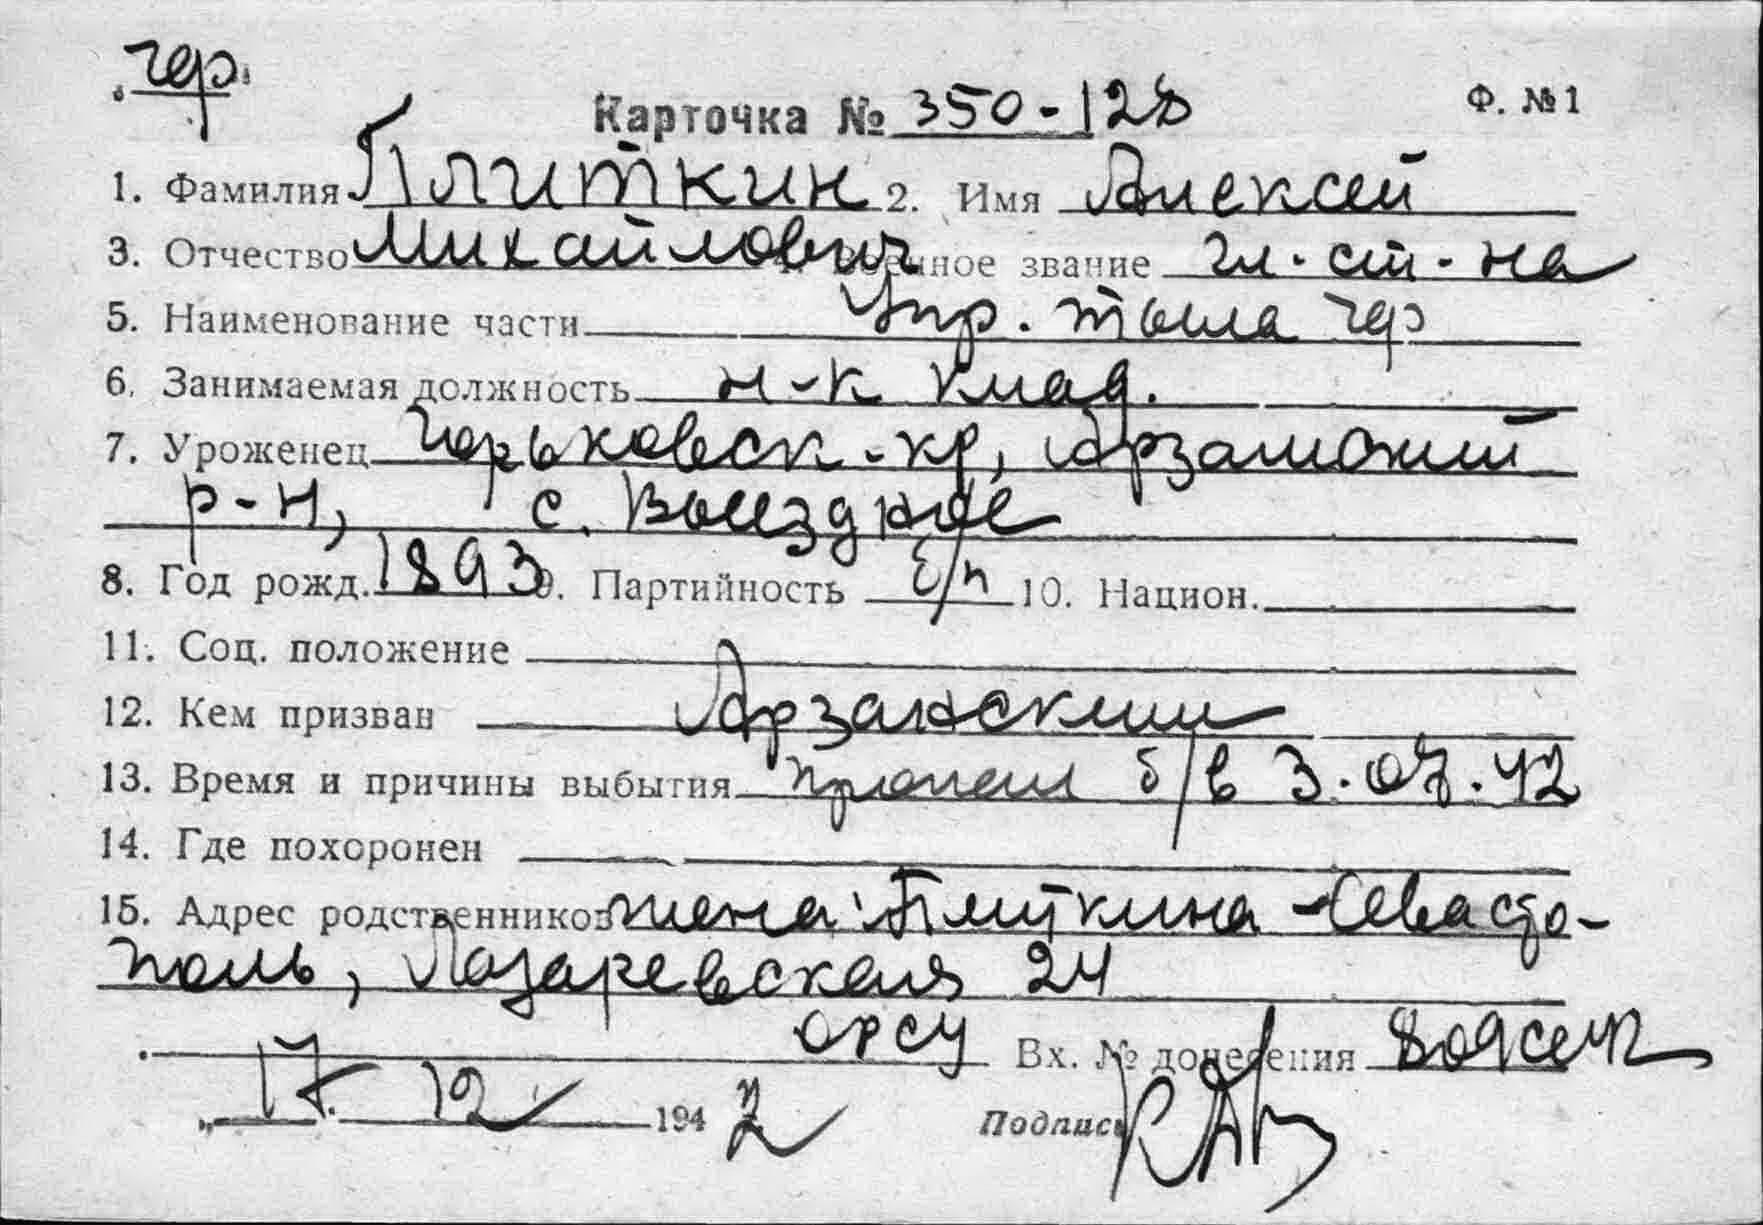 чф
Карточка № 350-128 Ф. №1
1. Фамилия Плиткин 2. Имя Алексей
3. Отчество Михайлович военное звание гл. ст-на
5. Наименование части Упр. тыла чф
6. Занимаемая должность н-к клад.
7. Уроженец Горьковск. кр, Арзамский
р-н, с. Выездное
8. Год рожд. 1893 9. Партийность б/п 10. Национ.
11. Соц. положение
12. Кем призван Арзамским
13. Время и причины выбытия пропал б/в 3.07.42
14. Где похоронен
15. Адрес родственников жена: Плиткина - Севасто-
поль, Лазаревская 24
Вх. № донесения
17. 12 1942 Подпись